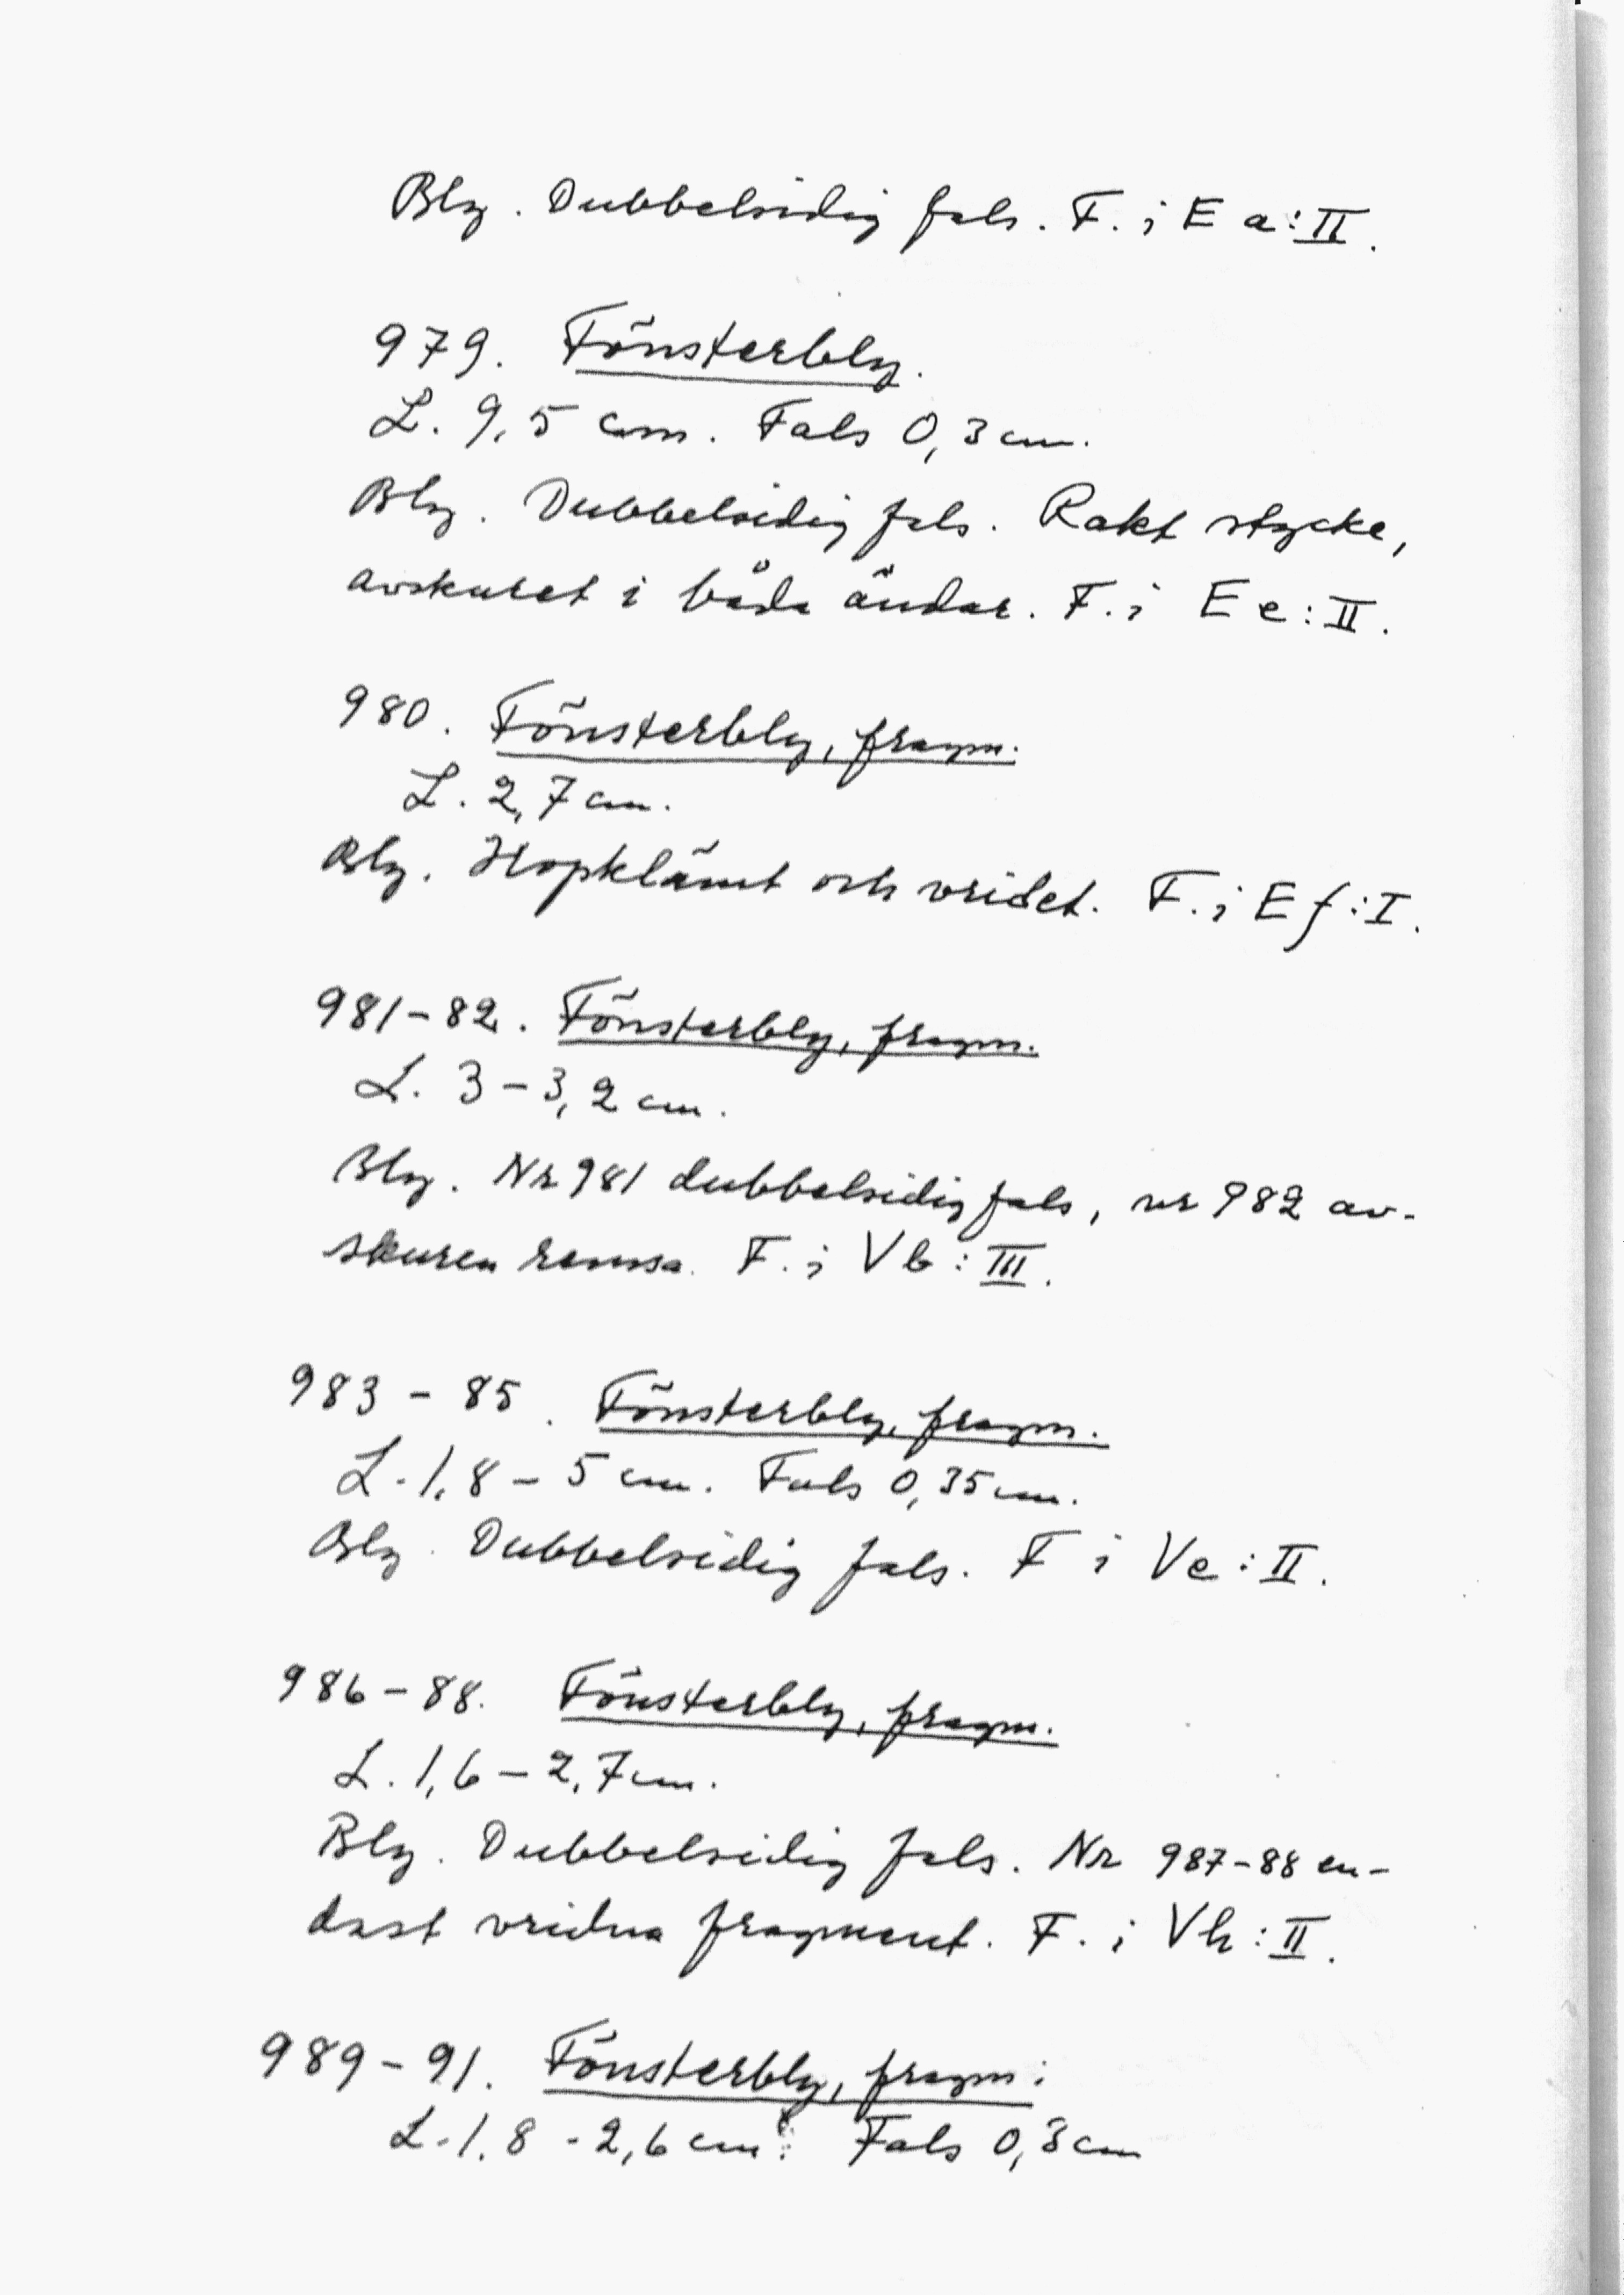 Bly. Dubbelsidig fals. F. i E a:II.
979. Fönsterbly.
L. 9,5 cm. Fals 0,3 cm.
Bly. Dubbelsidig fals. Rakt stycke,
avskuret i båda ändar. F. i E e:II.
980. Fönsterbly, fragm.
L. 2,7 cm.
Bly. Hopklämt och vridet. F. i E f:I.
981-82. Fönsterbly, fragm.
L. 3-3,2 cm.
Bly. Nr 981 dubbelsidig fals, nr 982 av-
skuren remsa. F. i V b:III.
983-85. Fönsterbly, fragm.
L. 1,8-5 cm. Fals 0,35 cm.
Bly. Dubbelsidig fals. F i V e:II.
986-88. Fönsterbly, fragm.
L. 1,6-2,7 cm.
Bly. Dubbelsidig fals. Nr 987-88 en-
dast vridna fragment. F. i V h:II.
989-91. Fönsterbly, fragm.
L. 1,8-2,6 cm. Fals 0,3 cm